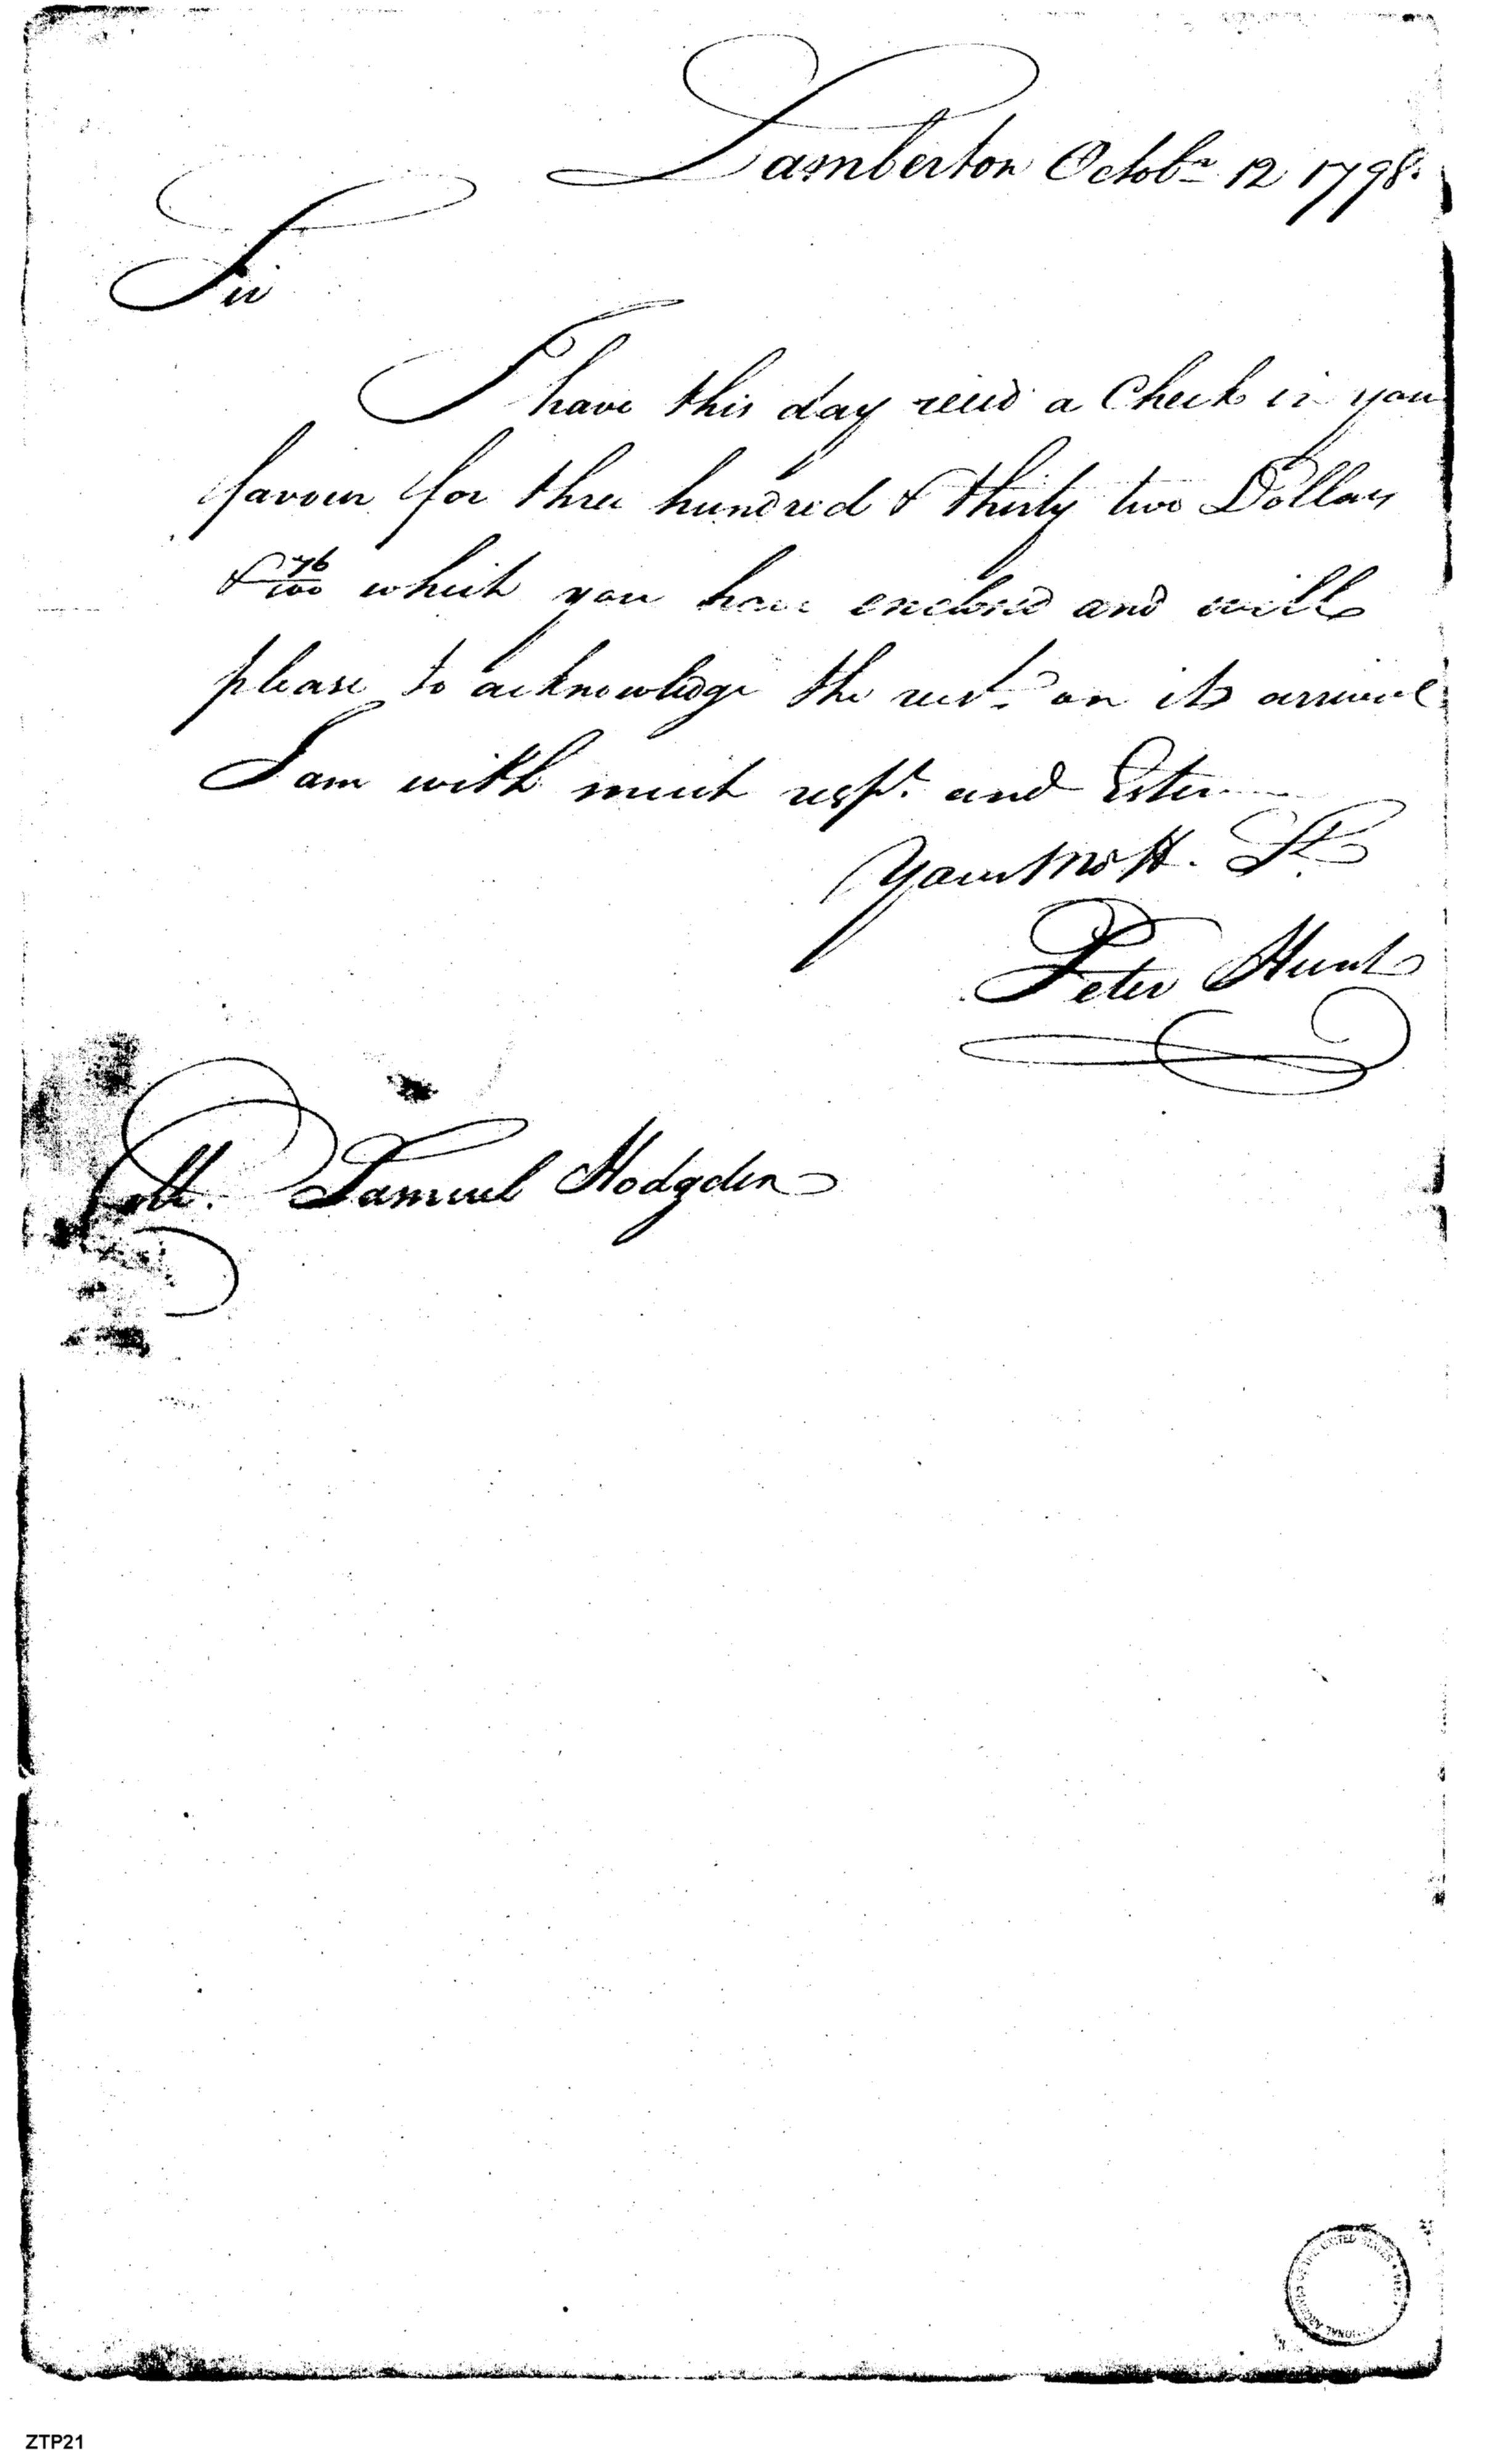 Lamberton Octobr 12 1798.
Sir
I have this day recd a Check in your
favour for three hundred & thirty two Dollars
& 76/100 which you have enclosed and will
please to acknowledge the rect. on its arrival
I am with much respt. and Esteem
Your Mo H. St.
Peter Hunt
Coll. Samuel Hodgden
ZTP21